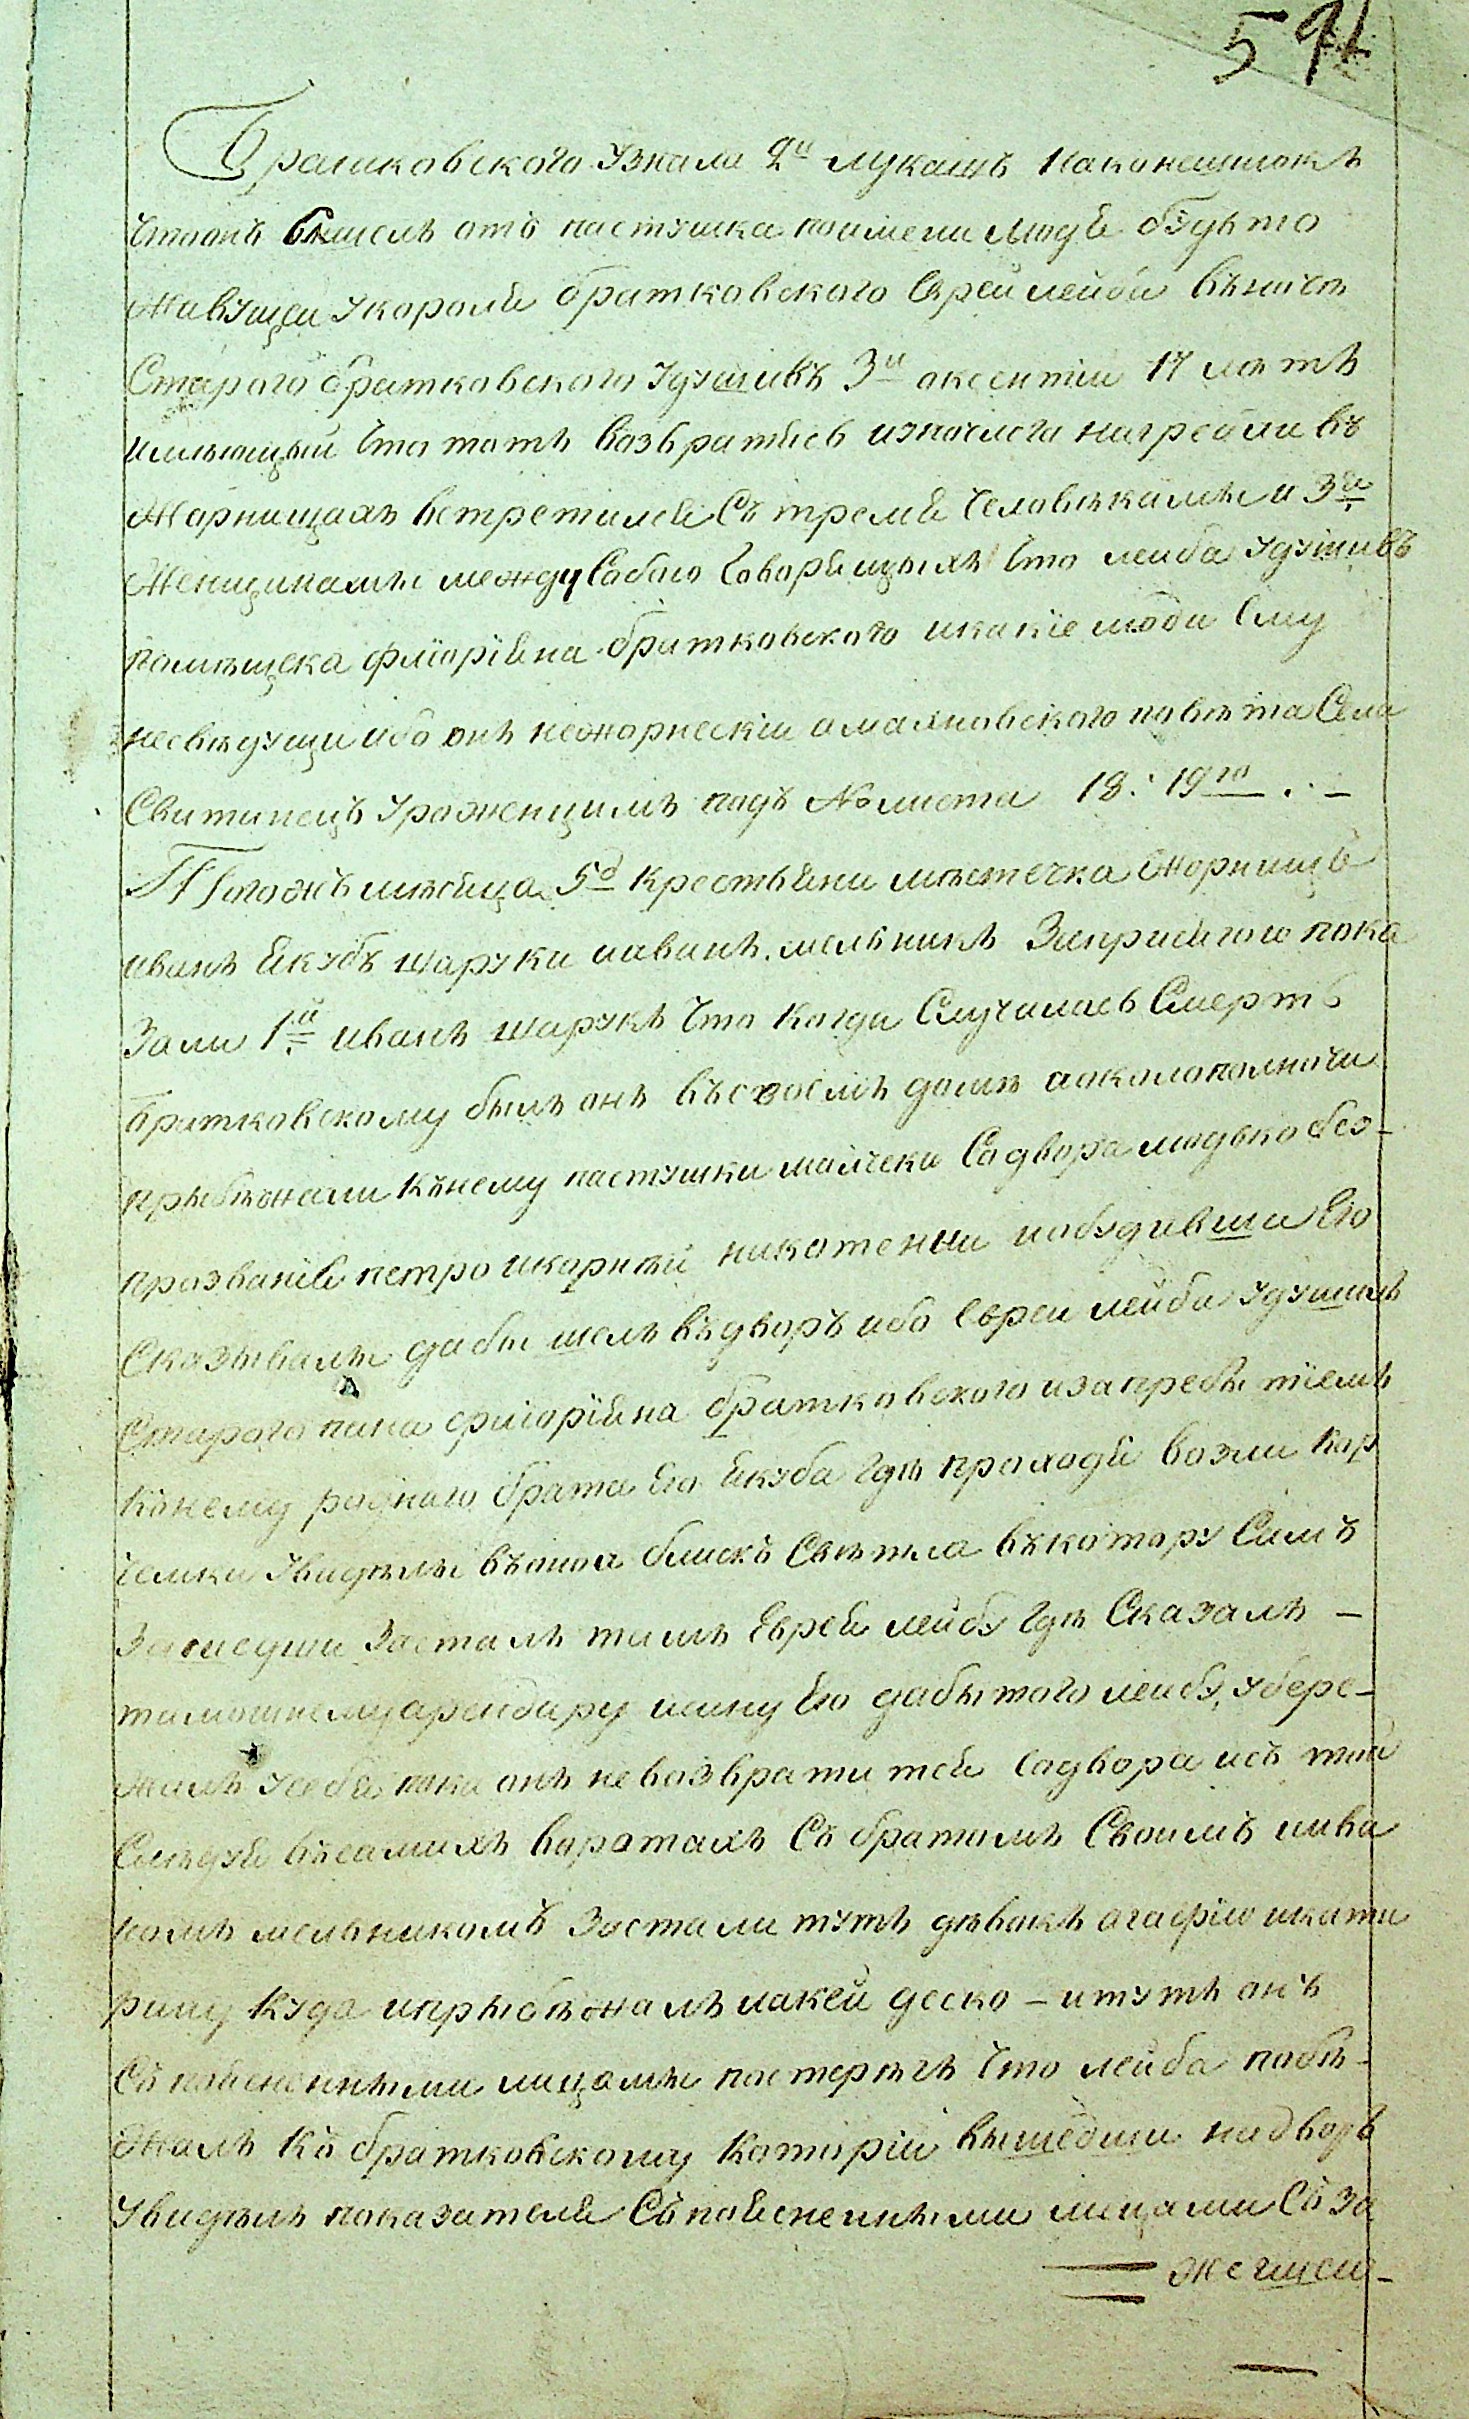 594
Братковского узнали 2й лукашъ Наконешнюкъ
Что онъ Слышелъ отъ пастушка поимени люди будьто
Живущей укороли братковского Еврей лейба вночѣ
Старого братковского удушивъ 3й аксентии 17 лѣтъ
имѣющый Что тотъ Возвратясь изпочлега нагребли въ
Жорнищахъ встретился Съ тремя Человѣкамы и 3мя
Женщинамы между Собою Говорящыхъ Что лейба удушивъ
помѣщека флiорiяна братковского икакіе люди Ему
несвѣдущи ибо онъ нежорнескiи амахновского повѣта Села
Свитинецъ уроженцимъ подъ № листа 18: 19го
Тогожъ мѣсяца 5д крестьяни мѣстечка Жорнищъ
иванъ Якубъ шаруки ииванъ мельникъ Заприсягою пока
Зали 1й иванъ шарукъ Что Когда Случилась Смерть
братковскому былъ онъ въсвоемъ домѣ аоколополночи
прыбѣжали кънему пастушки малчеки Содвора людько без-
прозванiя петро шкорный никотенни ибудивши Его
Сказывалы дабы шелъ въдворъ ибо Еврей лейба удушилъ
Старого пана флiорiяна братковского изапребытiемъ
Кънему родного брата Его Якуба Гдѣ проходя возли Кор
чемки увидѣлы въоной блискъ Свѣтла въкотору Самъ
Зашедши Засталъ тамъ Еврея лейбу Гдѣ Сказалъ -
тамошнемуарендару шину Его дабытого лейбу, убере-
жалъ усебя поки онъ невозвратится Содвора исъ тѣмъ
Слѣдуя въсамихъ воротахъ Съ братомъ Своимъ иива
номъ мельникомъ Застали тутъ дѣвокъ агафiю икати
рину Куда ипрыбѣжалъ лакей деско - итутъ онъ
Съ пояснеными лицамы постерегъ Что лейба побѣ-
Жалъ Къ братковскому Которiй вышедши надворъ
увидѣлъ показателя Съ пояснеными лицами Съ за
жегшею-